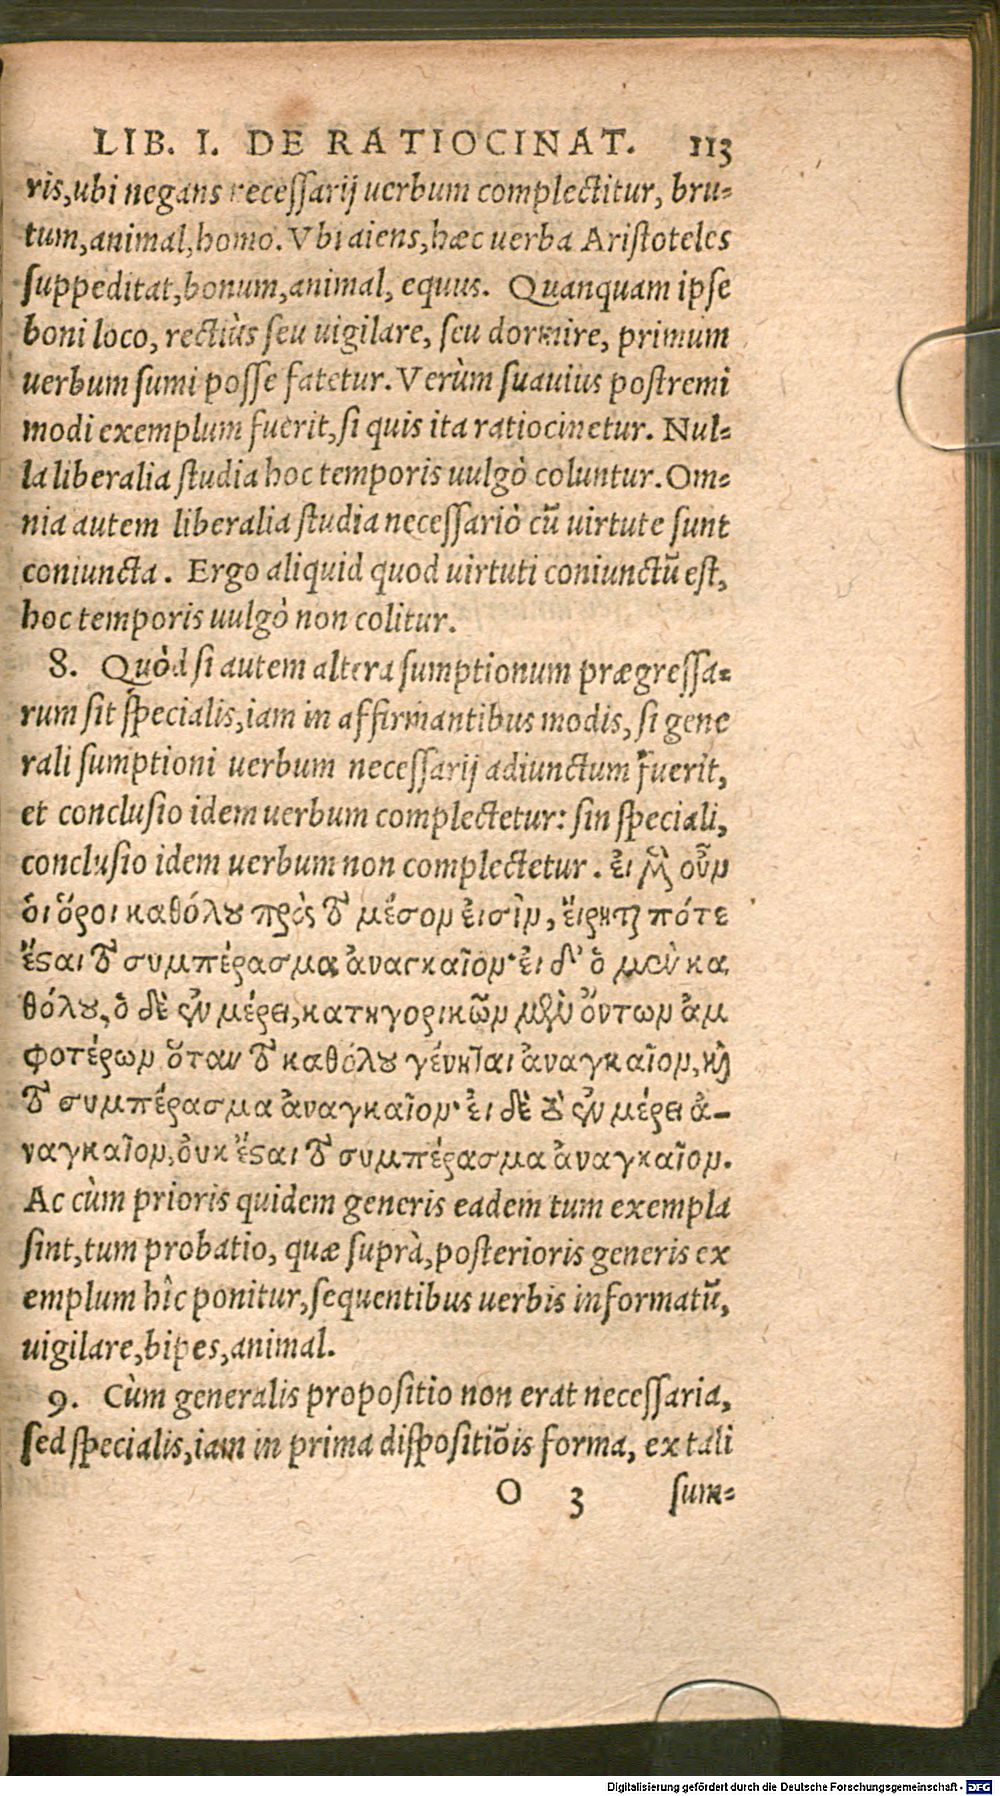 LIB. I. DE RATIOCINAT. 113
ris, ubi negans necessarij uerbum complectitur, bru-
tum, animal, homo. Vbi aiens, hæc uerba Aristoteles
suppeditat, bonum, animal, equus. Quanquam ipse
boni loco, rectiùs seu uigilare, seu dormire, primum
uerbum sumi posse fatetur. Verùm suauius postremi
modi exemplum fuerit, si quis ita ratiocinetur. Nul-
la liberalia studia hoc temporis uulgò coluntur. Om-
nia autem liberalia studia necessariò cū uirtute sunt
coniuncta. Ergo aliquid quod uirtuti coniunctū est,
hoc temporis uulgò non colitur.
8. Quòd si autem altera sumptionum prægressa-
rum sit specialis, iam in affirmantibus modis, si gene
rali sumptioni uerbum necessarij adiunctum fuerit,
et conclusio idem uerbum complectetur: sin speciali,
conclusio idem uerbum non complectetur. ἐι μὲν οὖν
ὁι ὅροι καθόλου πρὸς τὸ μέσον ἐισὶν, ἔιρηται πότε
ἔσαι τὸ συμπέρασμα ἀναγκαῖον· ἐι δ' ὁ μὲν κα
θόλου, ὁ δὲ ἐν μέρει, κατηγορικῶν μὲν ὄντων ἀμ
φοτέρων ὅταν τὸ καθόλου γένηται ἀναγκαῖον, καὶ
τὸ συμπέρασμα ἀναγκαῖον· ἐι δὲ τὸ ἐν μέρει ἀ-
ναγκαῖον, ὀυκ ἔσαι τὸ συμπέρασμα ἀναγκαῖον.
Ac cùm prioris quidem generis eadem tum exempla
sint, tum probatio, quæ suprà, posterioris generis ex
emplum hîc ponitur, sequentibus uerbis informatū,
uigilare, bipes, animal.
9. Cùm generalis propositio non erat necessaria,
sed specialis, iam in prima dispositiōis forma, ex tali
O 3 sum-
Digitalisierung gefördert durch die Deutsche Forschungsgemeinschaft - DFG